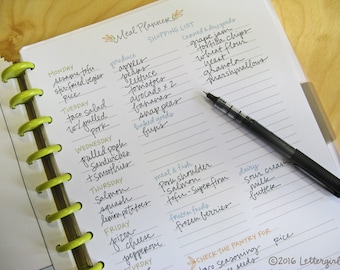 Meal Planner
SHOPPING LIST
MONDAY
sesame tofu
stir-fried veges
rice
TUESDAY
taco salad
w/ pulled
pork
WEDNESDAY
pulled pork
sandwiches
+ smoothies
THURSDAY
salmon
squash
lemon potatoes
FRIDAY
pizza
cheese
pepperoni
produce
apples
lettuce
tomatoes
avocado x 2
bananas
snap peas
baked goods
buns
canned & dry goods
grape jam
tortilla chips
wheat flour
yeast
granola
marshmallows
meat & fish
pork shoulder
salmon
tofu - superfirm
frozen foods
frozen berries
dairy
sour cream
butter
CHECK THE PANTRY FOR
taco seasoning
rice
©2016 Lettergirl